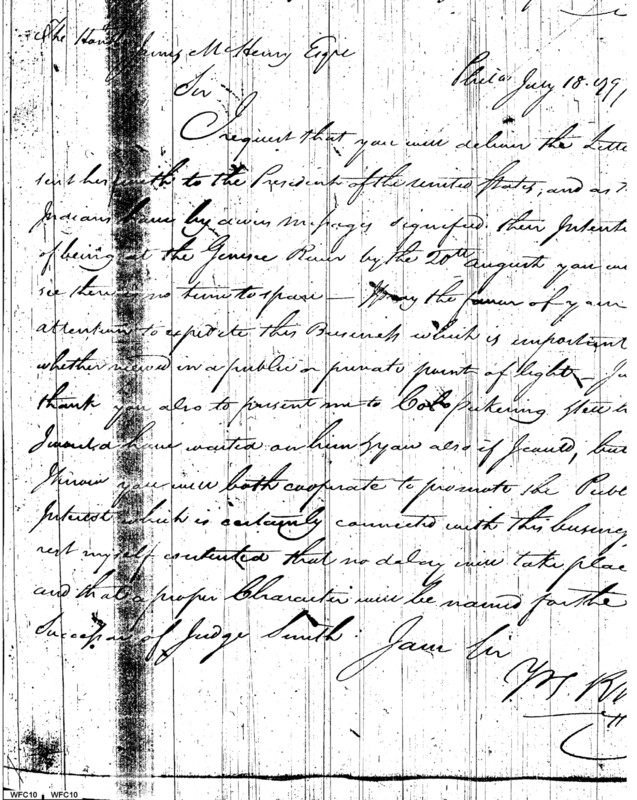 The Honble James McHenry Esqre
Phila July 18. 179
Sir
I request that you will deliver the Lette
sent herewith to the President of the united States, and as
Indians have by divers messages signified their Intenti
of being at the Genesee River by the 20th august you will
see there is no time to spare — I pray the favour of your
attention to expedite this Business which is important
whether viewed in a public or private point of light —
thank you also to present me to Colo Pickering
I would have waited on him & you also if I could, but
I know you will both cooperate to promote the Publ
Interest which is certainly connected with this business
rest myself contented that no delay will take place
and that a proper Character will be named for the
Successor of Judge Smith I am Sir
WFC10 WFC10